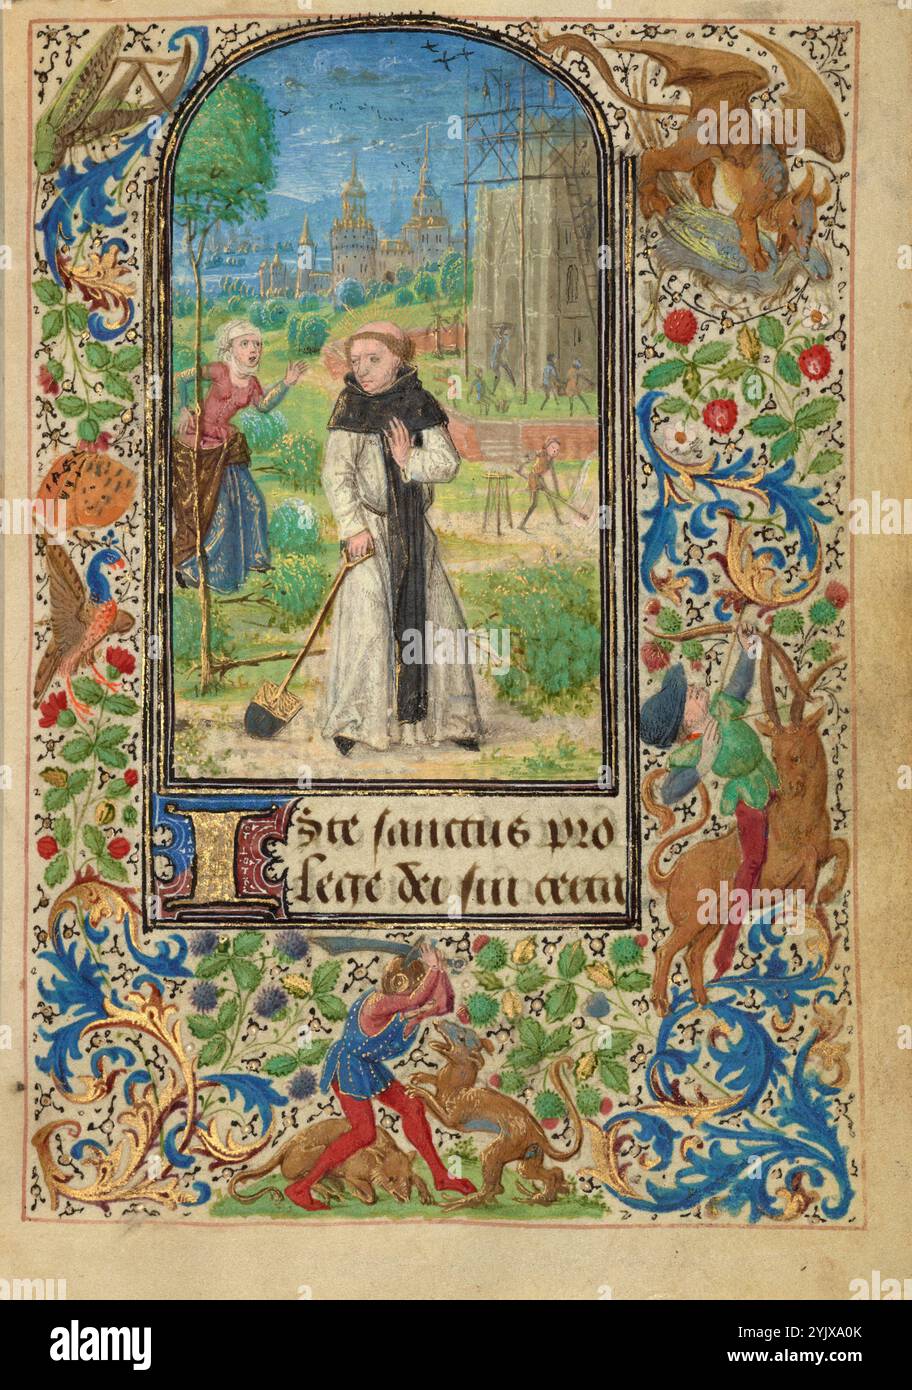 ISte sanctus pro
lege dei sui certa
alamy
Image ID: 2YJXA0K
www.alamy.com